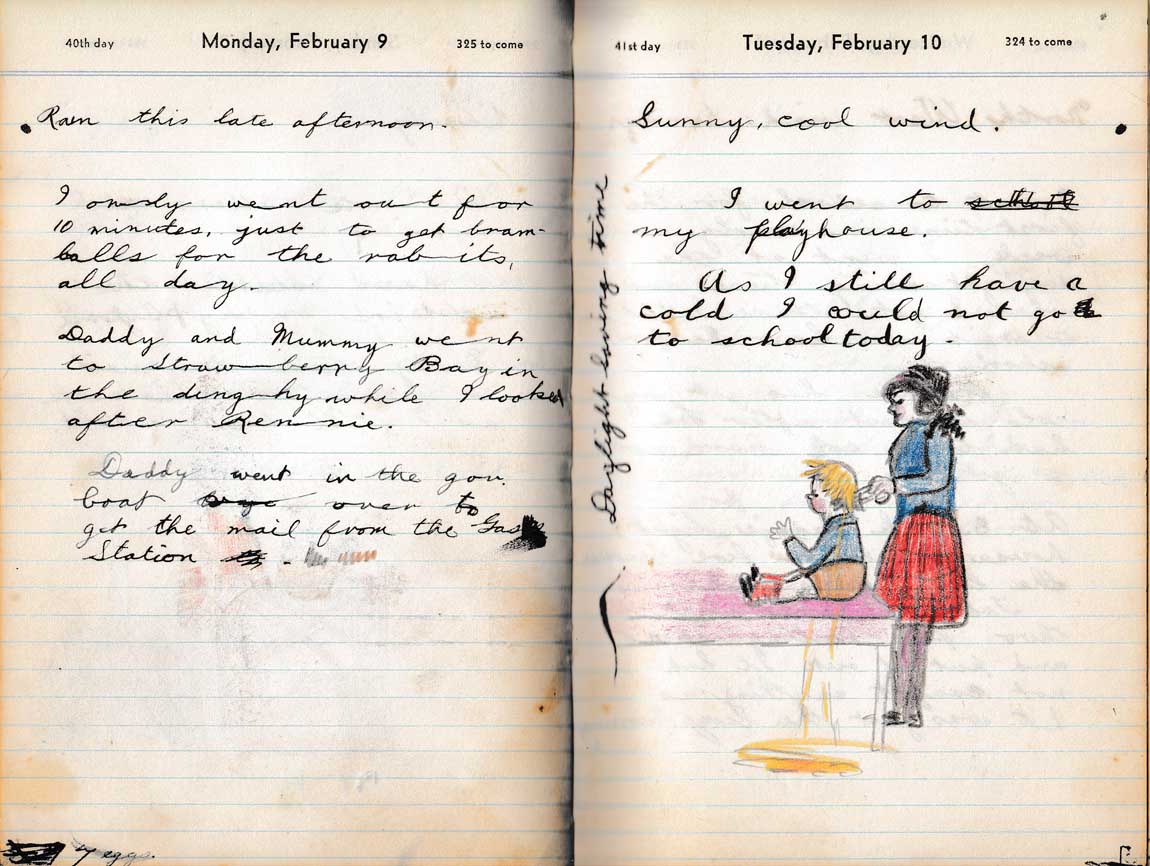 40th day Monday, February 9 325 to come
Rain this late afternoon.
I omsly went out for
10 minutes, just to get bram-
balls for the rabits,
all day.
Daddy and Mummy went
to Strawberry Bay in
the dinghy while I looked
after Rennie.
Daddy went in the gov.
boat over to
get the mail from the Gas
Station .
7 eggs.
41st day Tuesday, February 10 324 to come
Sunny, cool wind.
I went to school
my playhouse.
As I still have a
cold I could not go
to school today.
Daylight saving time